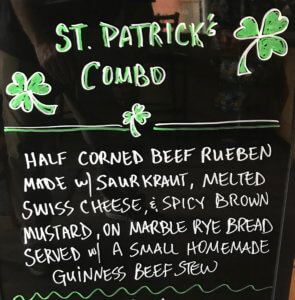 ST. PATRICK'S
COMBO
HALF CORNED BEEF RUEBEN
MADE w/ SAURKRAUT, MELTED
SWISS CHEESE, & SPICY BROWN
MUSTARD, ON MARBLE RYE BREAD
SERVED w/ A SMALL HOMEMADE
GUINNESS BEEF STEW